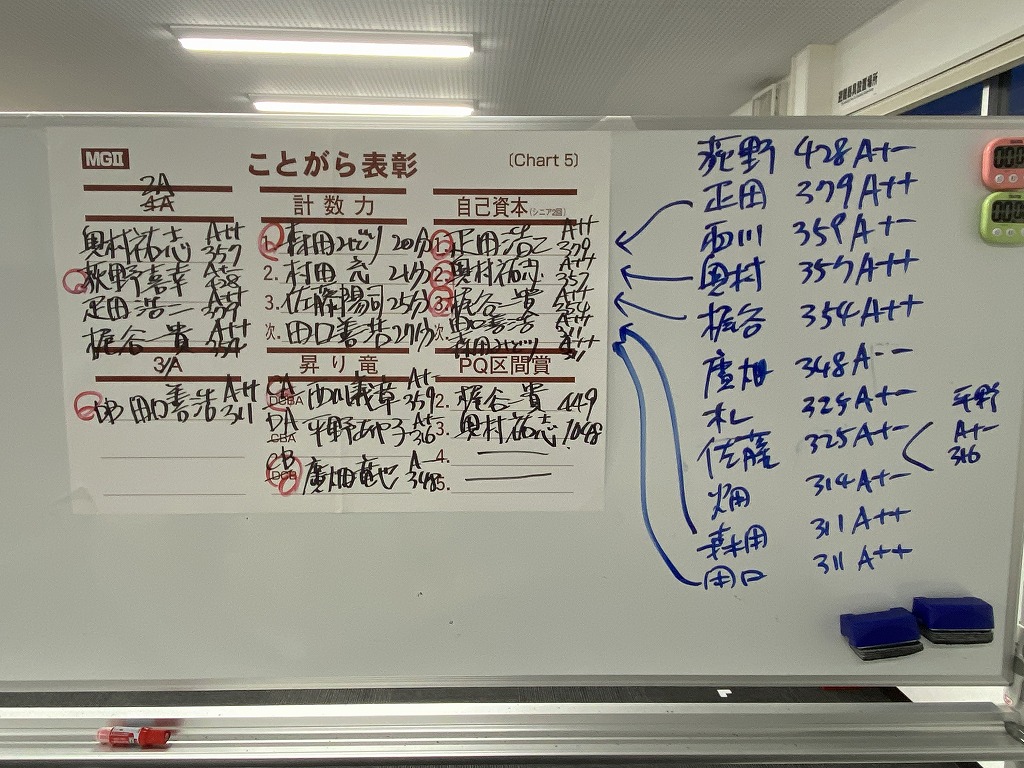 避難器具設置場所
MGII
ことがら表彰
〔Chart 5〕
2A
4A
奥村祐志 A++ 357
荻野喜幸 A+- 428
正田浩二 A++ 379
梶谷貴 A++ 354
計数力
1. 森田みどり 20分
2. 村田亮 21分
3. 佐藤陽司 25分
次. 田口善浩 27分
自己資本(シニア2個)
1. 正田浩二 A++ 379
2. 奥村祐志 A++ 357
3. 梶谷貴 A++ 354
田口善浩 A++ 311
次. 森田みどり A++ 311
3A
田口善浩 A++ 311
昇り竜
CA
DCBA
西川義章 A+- 359
DA
CBA
平野あや子 A+- 316
CB
DCB
廣畑 A-- 348
PQ区間賞
2. 梶谷貴 449
3. 奥村祐志 1048
4.
5.
荻野 428 A+-
正田 379 A++
西川 359 A+-
奥村 357 A++
梶谷 354 A++
廣畑 348 A--
札 325 A+-
佐藤 325 A+-
平野
A+-
316
畑 314 A+-
森田 311 A++
田口 311 A++